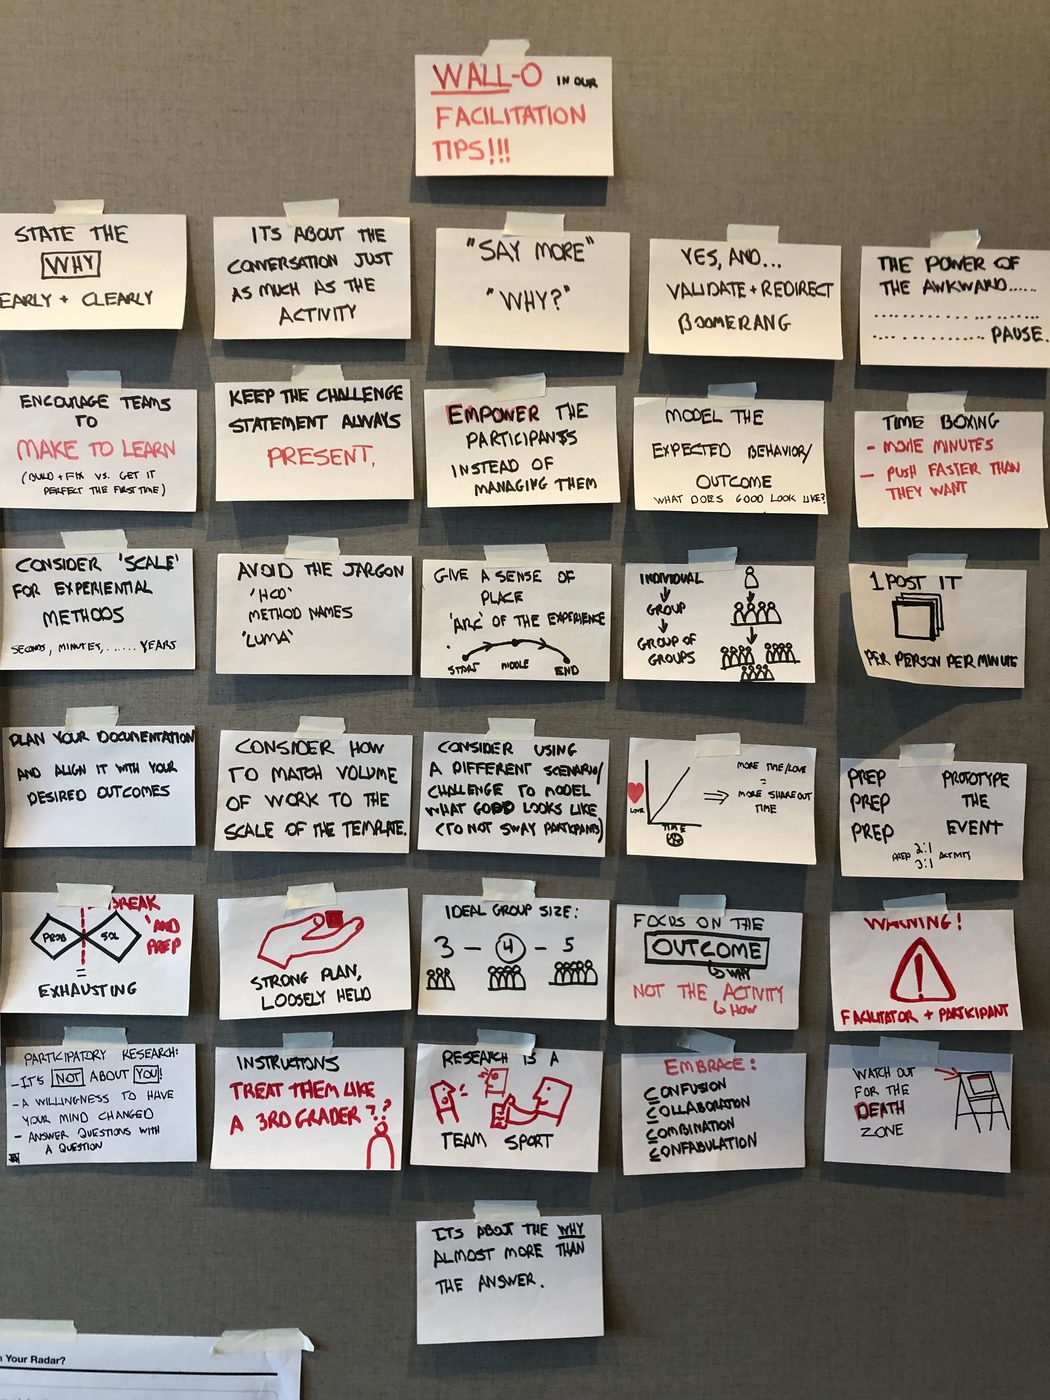 WALL-O IN OUR
FACILITATION
TIPS!!!
STATE THE
WHY
EARLY + CLEARLY
ITS ABOUT THE
CONVERSATION JUST
AS MUCH AS THE
ACTIVITY
"SAY MORE"
"WHY?"
YES, AND...
VALIDATE + REDIRECT
BOOMERANG
THE POWER OF
THE AWKWARD......
..................
.............. PAUSE.
ENCOURAGE TEAMS
TO
MAKE TO LEARN
(BUILD + FIX VS. GET IT
PERFECT THE FIRST TIME)
KEEP THE CHALLENGE
STATEMENT ALWAYS
PRESENT.
EMPOWER THE
PARTICIPANTS
INSTEAD OF
MANAGING THEM
MODEL THE
EXPECTED BEHAVIOR/
OUTCOME
WHAT DOES GOOD LOOK LIKE?
TIME BOXING
- MORE MINUTES
- PUSH FASTER THAN
THEY WANT
CONSIDER 'SCALE'
FOR EXPERIENTIAL
METHODS
SECONDS, MINUTES,...... YEARS
AVOID THE JARGON
'HCD'
METHOD NAMES
'LUMA'
GIVE A SENSE OF
PLACE
'ARC' OF THE EXPERIENCE
START MIDDLE END
INDIVIDUAL
GROUP
GROUP OF
GROUPS
1 POST IT
PER PERSON PER MINUTE
PLAN YOUR DOCUMENTATION
AND ALIGN IT WITH YOUR
DESIRED OUTCOMES
CONSIDER HOW
TO MATCH VOLUME
OF WORK TO THE
SCALE OF THE TEMPLATE.
CONSIDER USING
A DIFFERENT SCENARIO/
CHALLENGE TO MODEL
WHAT GOOD LOOKS LIKE
(TO NOT SWAY PARTICIPANTS)
LOVE
TIME
MORE TIME/LOVE
=
MORE SHARE OUT
TIME
PREP
PREP
PREP
PROTOTYPE
THE
EVENT
PREP 2:1 ACTIVITY
3:1
BREAK
'AND
PREP
PROB SOL
=
EXHAUSTING
STRONG PLAN,
LOOSELY HELD
IDEAL GROUP SIZE:
3 - 4 - 5
FOCUS ON THE
OUTCOME
WHY
NOT THE ACTIVITY
HOW
WARNING!
!
FACILITATOR + PARTICIPANT
PARTICIPATORY RESEARCH:
- IT'S NOT ABOUT YOU!
- A WILLINGNESS TO HAVE
YOUR MIND CHANGED
- ANSWER QUESTIONS WITH
A QUESTION
INSTRUCTIONS
TREAT THEM LIKE
A 3RD GRADER??
RESEARCH IS A
TEAM SPORT
EMBRACE:
CONFUSION
COLLABORATION
COMBINATION
CONFABULATION
WATCH OUT
FOR THE
DEATH
ZONE
ITS ABOUT THE WHY
ALMOST MORE THAN
THE ANSWER.
Your Radar?